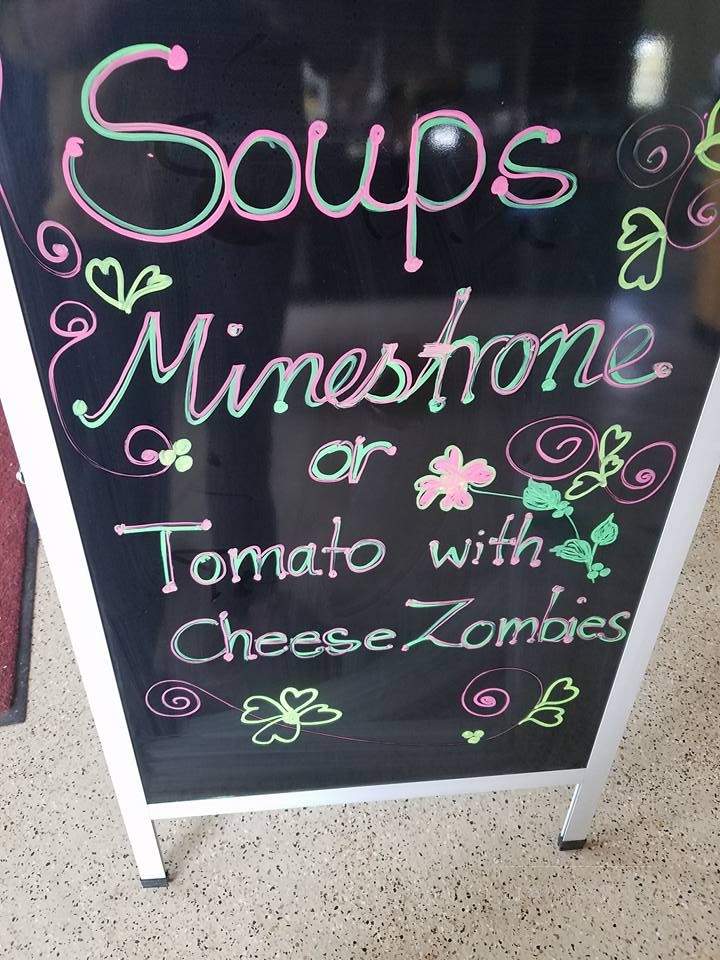 Soups
Minestrone
or
Tomato with
Cheese Zombies